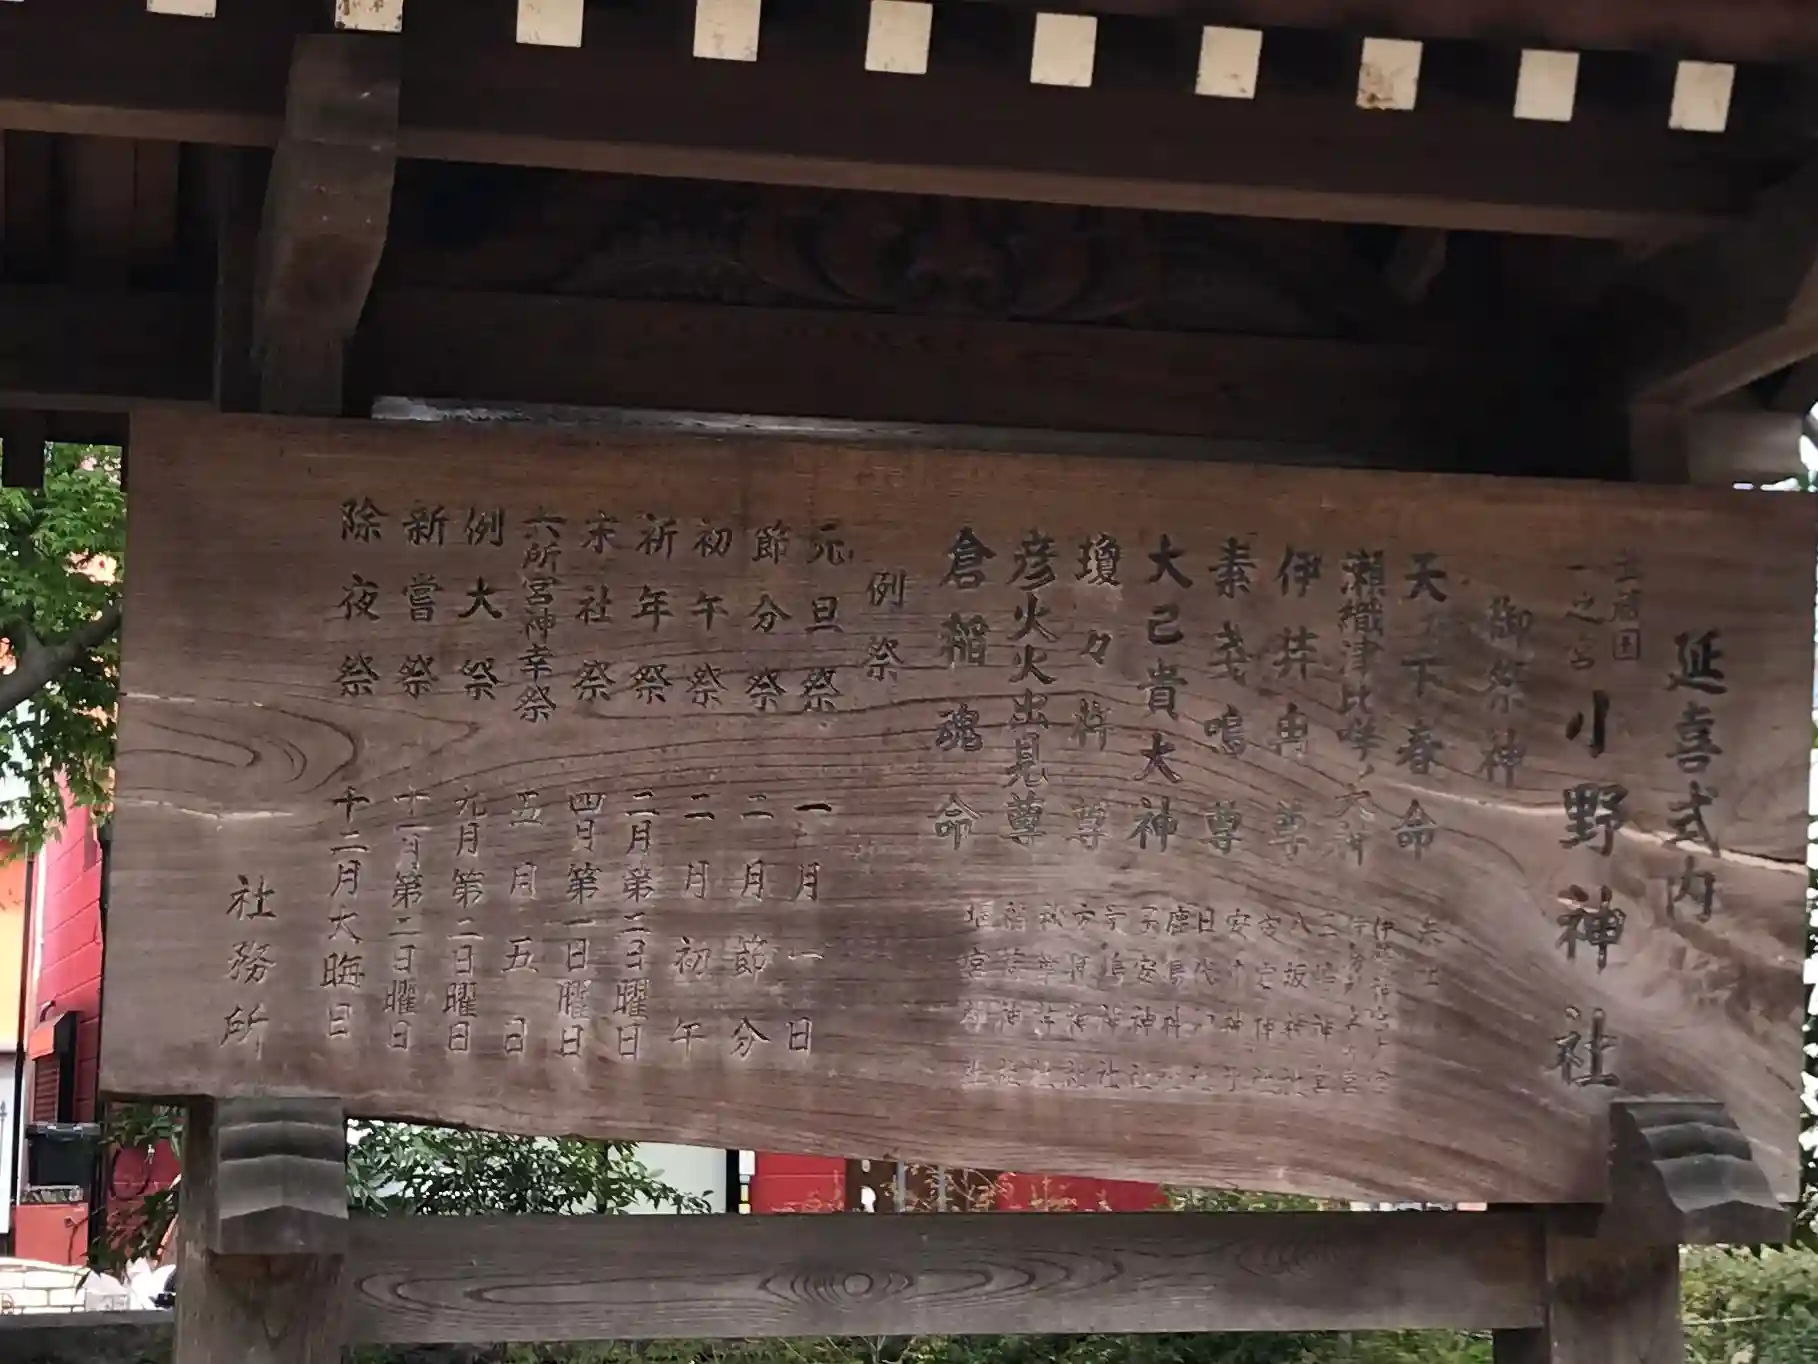 延喜式内
武蔵国
一之宮
小野神社
御祭神
天下春命
瀬織津比咩ノ大神
伊弉冉尊
素戔嗚尊
大己貴大神
瓊々杵尊
彦火火出見尊
倉稲魂命
末社
三嶋神社
八坂神社
鹿島神社
子安神社
秋葉神社
稲荷神社
例祭
元旦祭 一月一日
節分祭 二月節分
初午祭 二月初午
祈年祭 二月第三日曜日
末社祭 四月第一日曜日
六所宮神幸祭 五月五日
例大祭 九月第二日曜日
新嘗祭 十一月第二日曜日
除夜祭 十二月大晦日
社務所